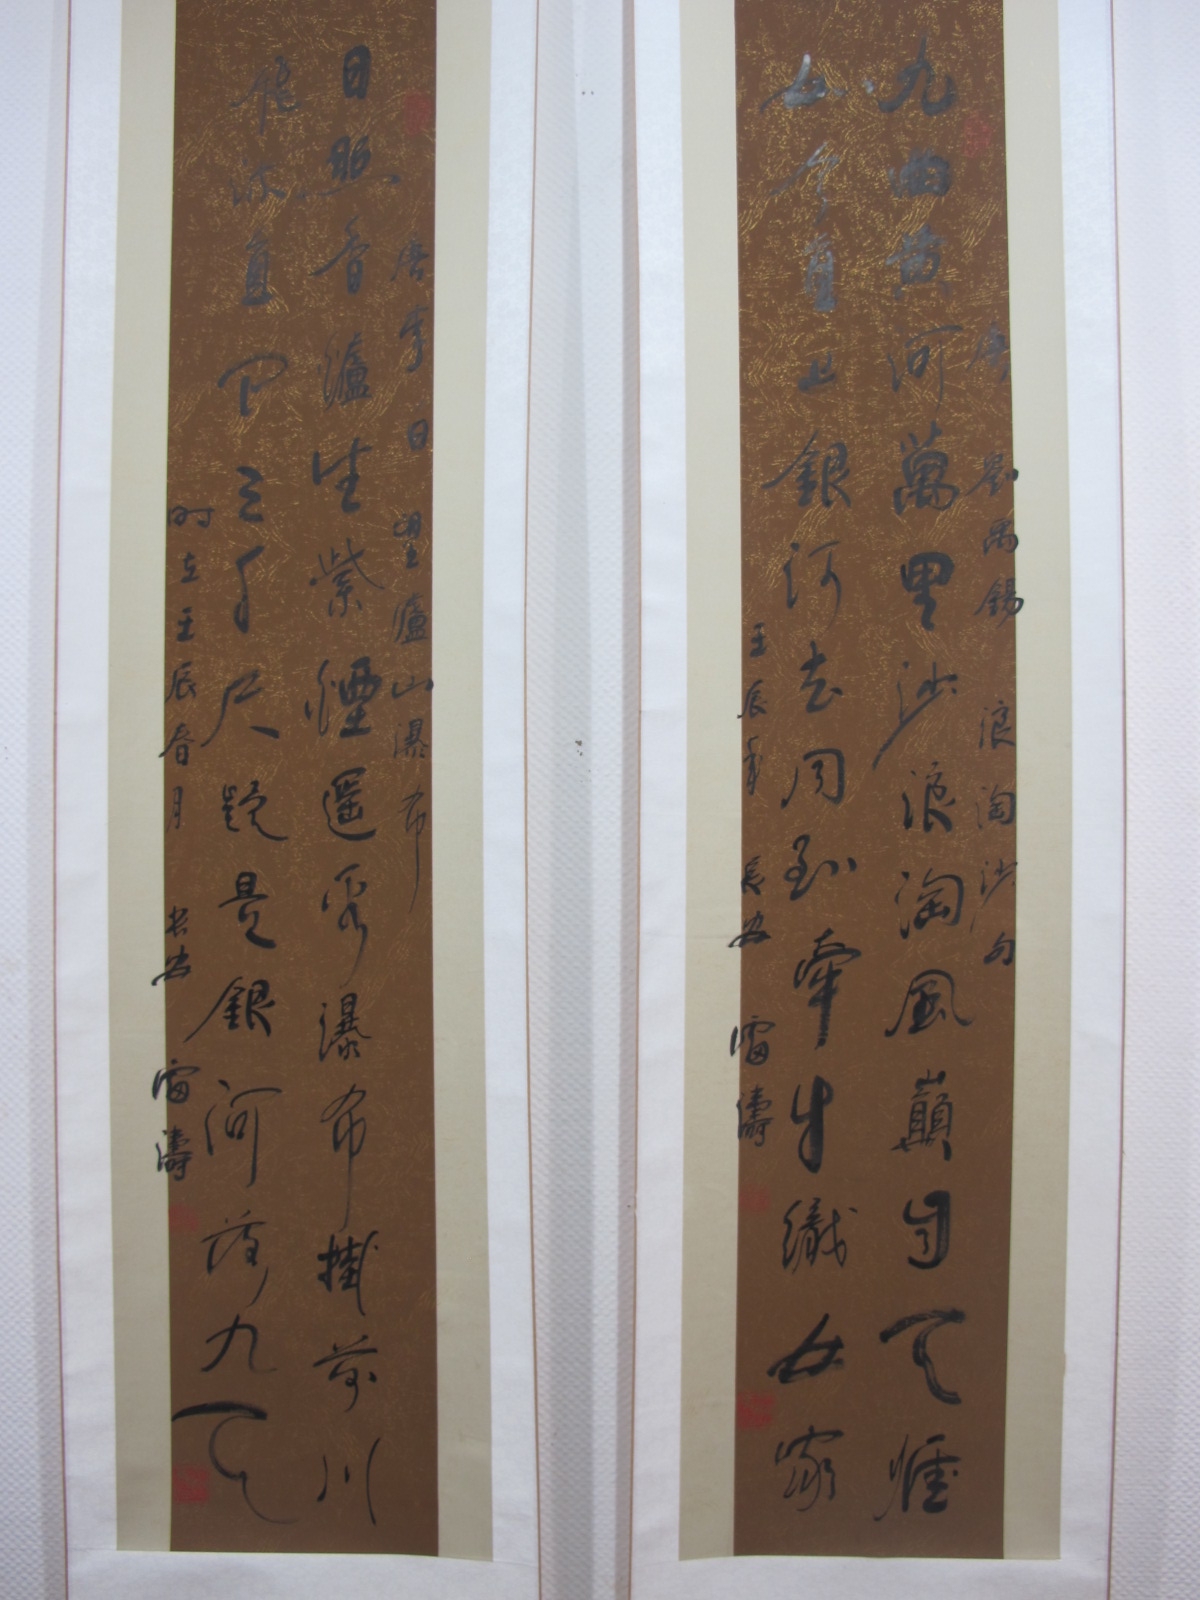 唐 劉禹錫 浪淘沙句
九曲黄河萬里沙浪淘風巔自天涯
如今直上銀河去同到牽牛織女家
壬辰年 長安 雷濤
唐李白 望廬山瀑布
日照香爐生紫煙遥看瀑布掛前川
飛流直下三千尺疑是銀河落九天
时在壬辰春月 长安 雷濤